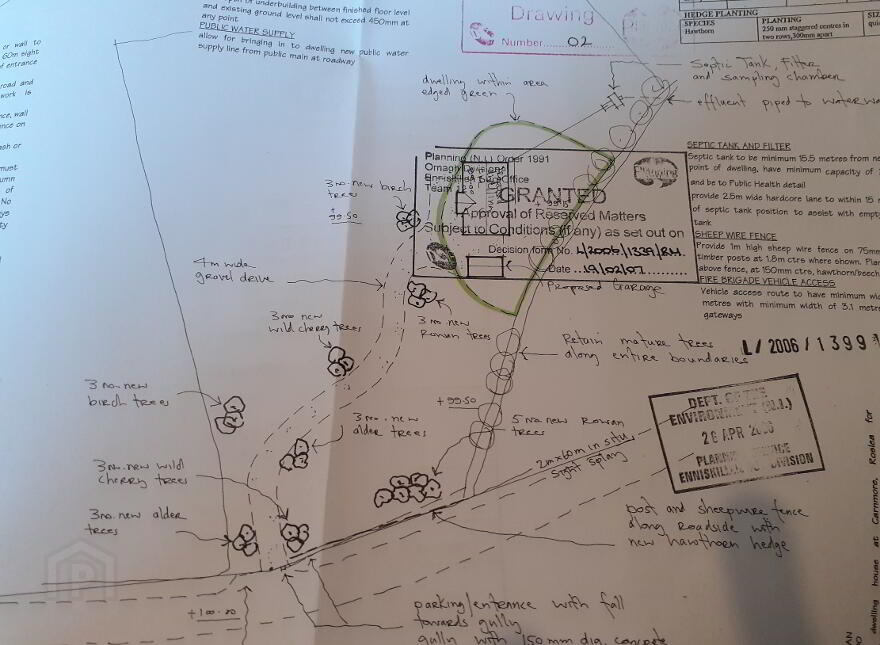 of underbuilding between finished floor level
and existing ground level shall not exceed 450mm at
any point
PUBLIC WATER SUPPLY
allow for bringing in to dwelling new public water
supply line from public main at roadway
Drawing
Number 02
HEDGE PLANTING
SPECIES
PLANTING
Hawthorn
250 mm staggered centres in
two rows,300mm apart
or wall to
60m sight
of entrance
road and
work is
nce, wall
nce on
ash or
must
umn
of
No
dwelling within area
edged green
Septic Tank, Filter
and sampling chamber
effluent piped to waterw
Planning (N.I.) Order 1991
Omagh Division
Enniskillen Sub Office
Team
GRANTED
Approval of Reserved Matters
Subject to Conditions (if any) as set out on
Decision form No. L/2006/1339/RM
Date 19/02/07
Planning
SEPTIC TANK AND FILTER
Septic tank to be minimum 15.5 metres from ne
point of dwelling, have minimum capacity of
and be to Public Health detail
provide 2.5m wide hardcore lane to within 15 m
of septic tank position to assist with empt
tank
SHEEP WIRE FENCE
Provide 1m high sheep wire fence on 75mm
timber posts at 1.8m ctrs where shown. Plan
above fence, at 150mm ctrs, hawthorn/beech
FIRE BRIGADE VEHICLE ACCESS
Vehicle access route to have minimum wid
metres with minimum width of 3.1 metre
gateways
3 no. new birch
trees
+ 99.50
4m wide
gravel drive
Proposed Garage
3 no. new
wild cherry trees
3 no. new
Rowan trees
Retain mature trees
along entire boundaries
L/2006/1399
3 no. new
birch trees
+ 99.50
3 no. new
alder trees
5 no. new Rowan
trees
DEPT. OF THE
ENVIRONMENT (N.I.)
26 APR 2006
PLANNING SERVICE
ENNISKILLEN DIVISION
2m x 60m in situ
sight splay
3 no. new wild
cherry trees
3 no. new alder
trees
post and sheepwire fence
along Roadside with
new hawthorn hedge
+100.00
parking/entrance with fall
towards gully
gully with 150mm dia. concrete
dwelling house at Carnmore, Roslea for